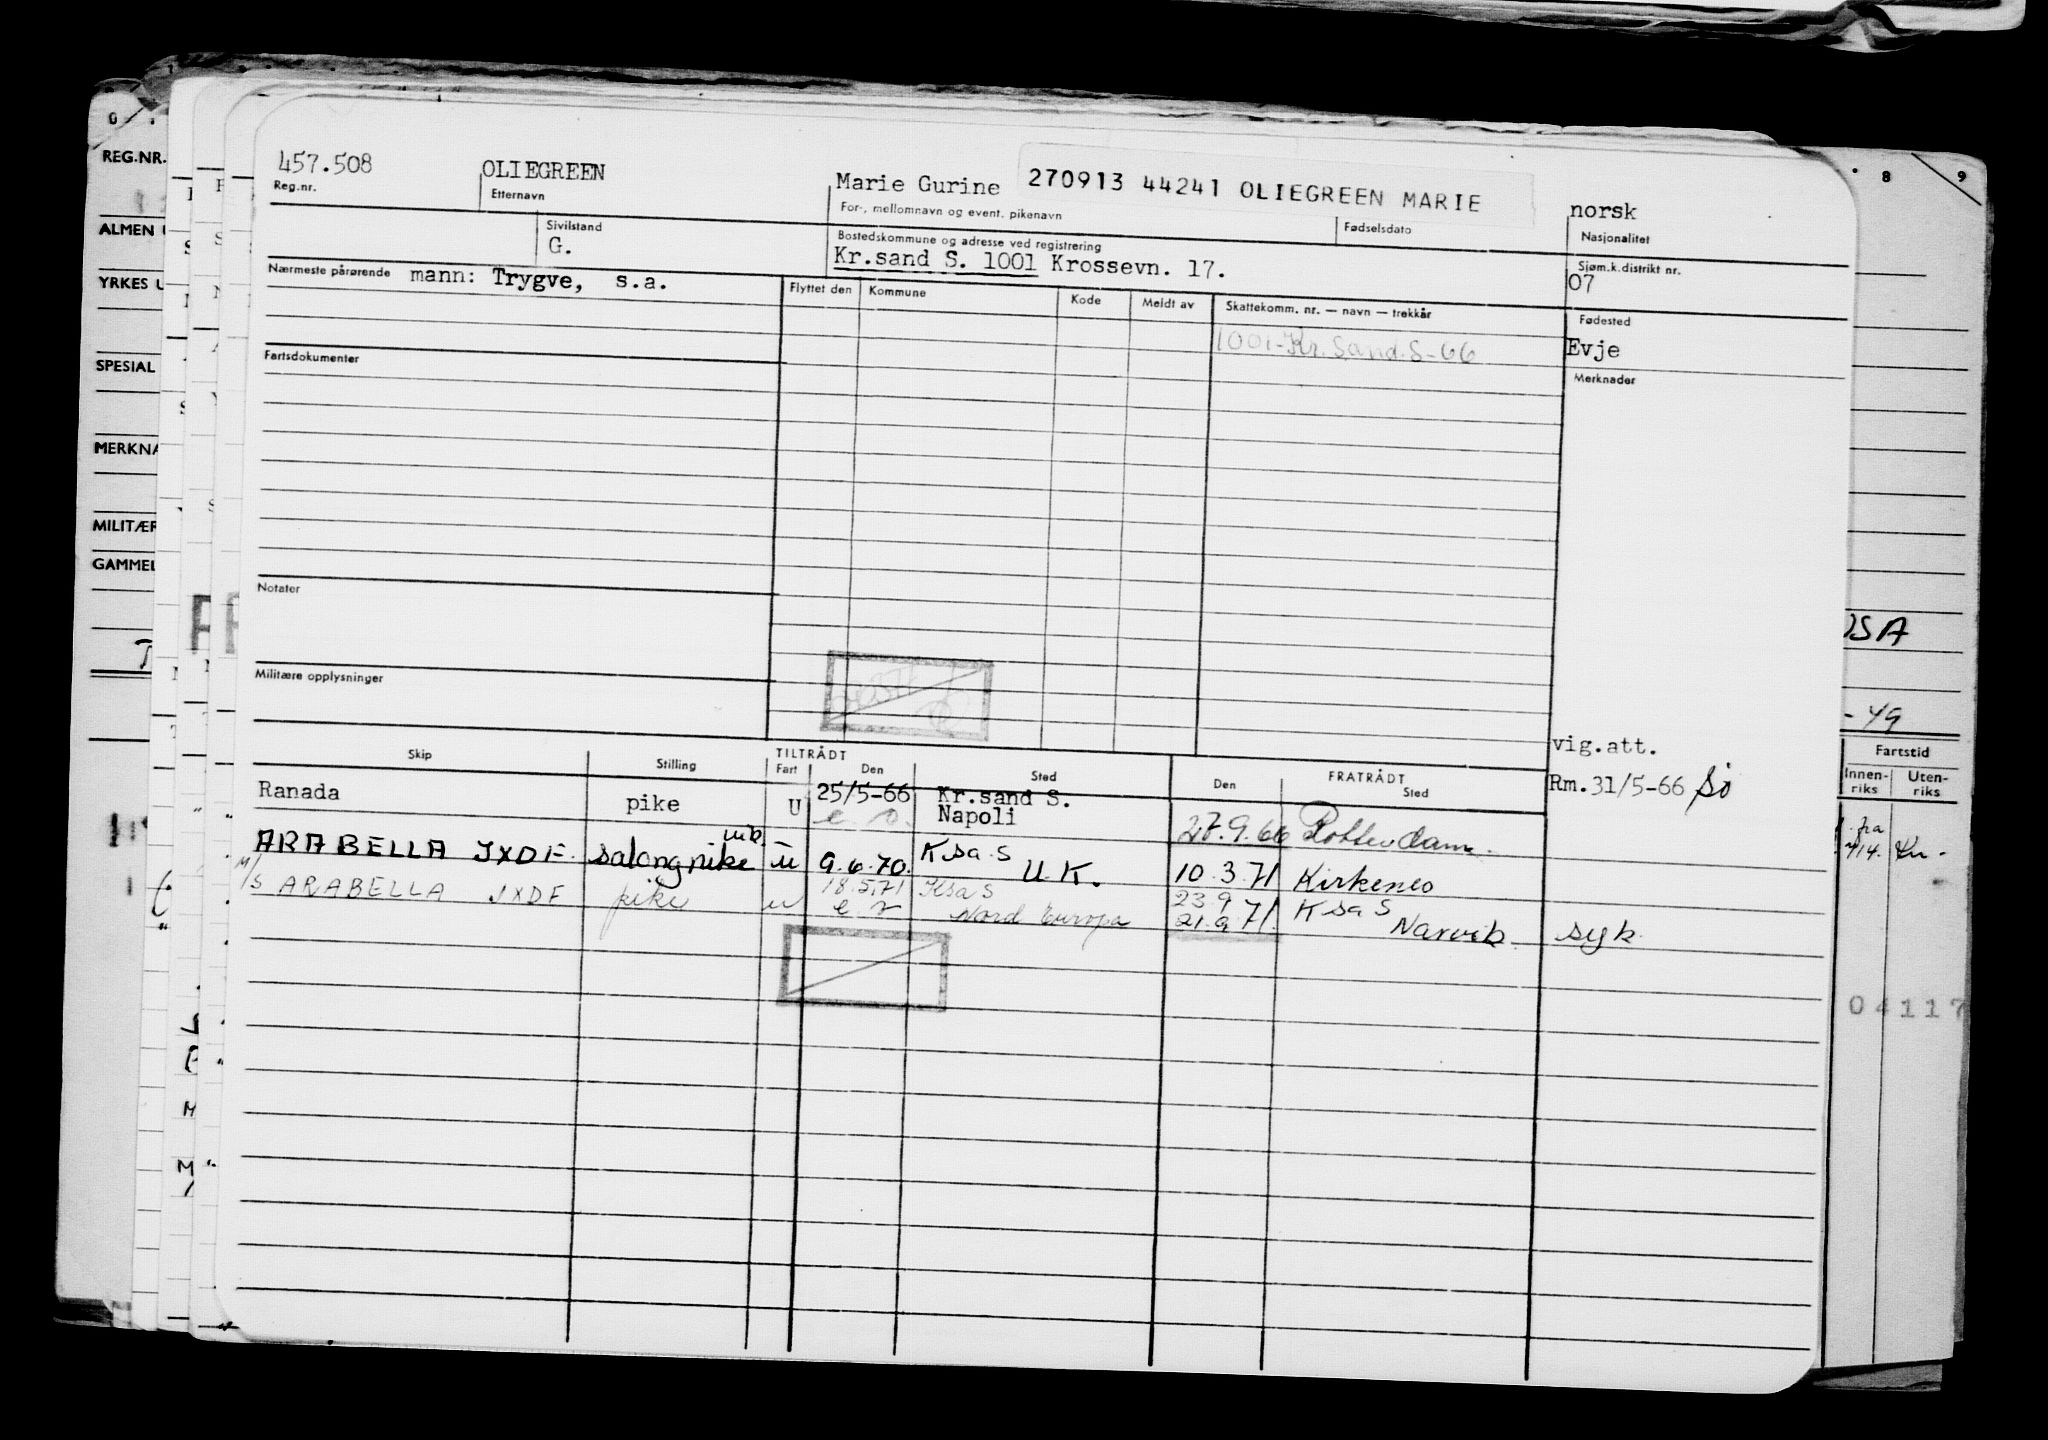 457.508 OLIEGREEN Marie Gurine 270913 44241 OLIEGREEN MARIE norsk
Reg.nr. Etternavn For-, mellomnavn og event. pikenavn Fødselsdato Nasjonalitet
Sivilstand Bostedskommune og adresse ved registrering Sjøm.k.distrikt nr.
G. Kr.sand S. 1001 Krossevn. 17. 07
Nærmeste pårørende mann: Trygve, s.a. Flyttet den Kommune Kode Meldt av Skattekomm. nr. — navn — trekkår Fødested
1001-Kr.Sand.S-66 Evje
Fartsdokumenter Merknader
Notater
Militære opplysninger
vig.att.
Skip Stilling TILTRÅDT Fart Den Sted FRATRÅDT Den Sted
Rm. 31/5-66
Ranada pike U 25/5-66 Kr.sand S.
Napoli 27.9.66 Rotterdam.
ARABELLA JXDF. salongpike u 9.6.70. Ksa. S U K. 10.3.71 Kirkenes
M/S ARABELLA JXDF pike u 18.5.71 Ksa S 23.9 Ksa S
Nord Europa 21.9.71. Narvik. syk.
REG.NR.
ALMEN
YRKES
SPESIAL
MERKNA
MILITÆR
GAMMEL
8 9
OSA
- 49
Fartstid
Innen-riks Uten-riks
fra
04117